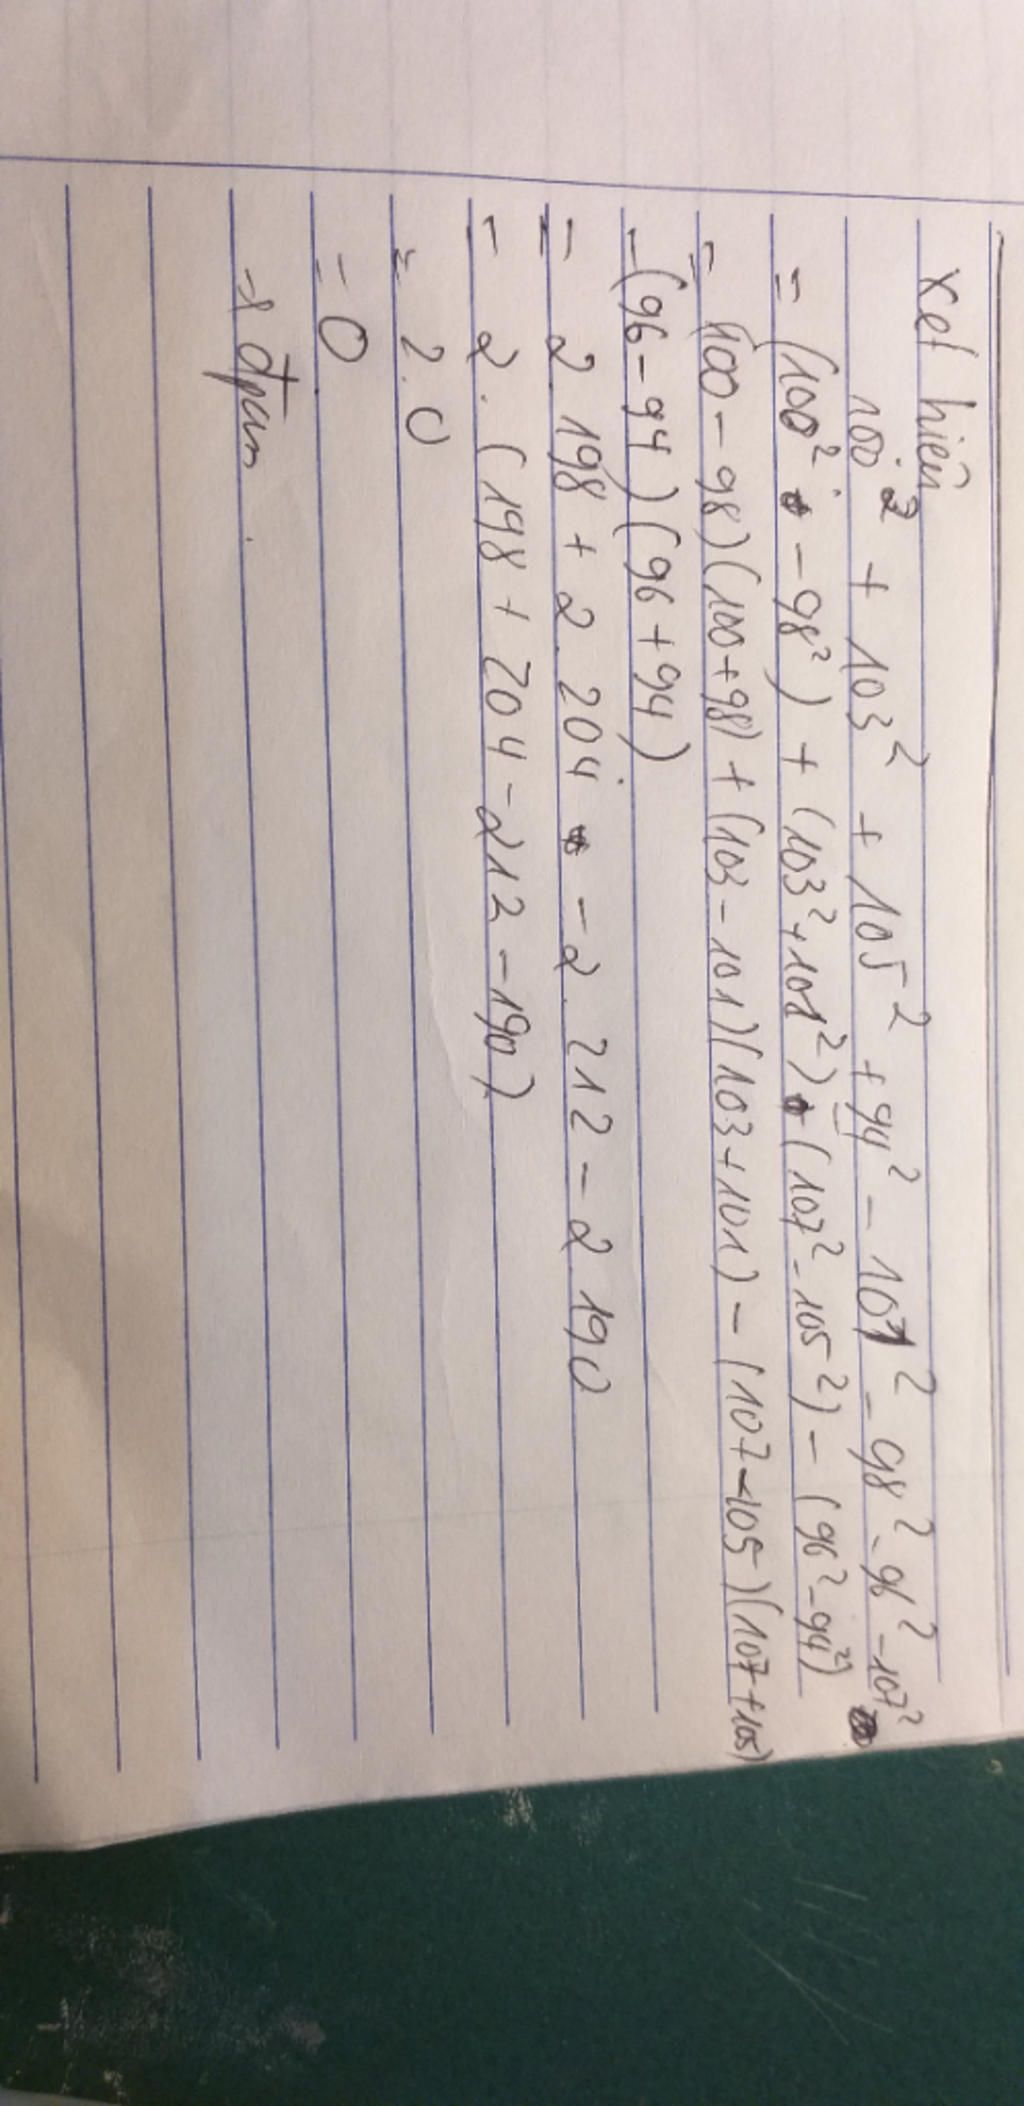 xét hiệu
100² + 103² + 105² + 94² - 101² - 98² - 96² - 107²
= (100² - 98²) + (103² + 101²) - (107² - 105²) - (96² - 94²)
= (100 - 98)(100 + 98) + (103 - 101)(103 + 101) - (107 - 105)(107 + 105)
- (96 - 94)(96 + 94)
= 2.198 + 2.204 - 2.212 - 2.190
= 2.(198 + 204 - 212 - 190)
= 2.0
= 0
→ đpcm.